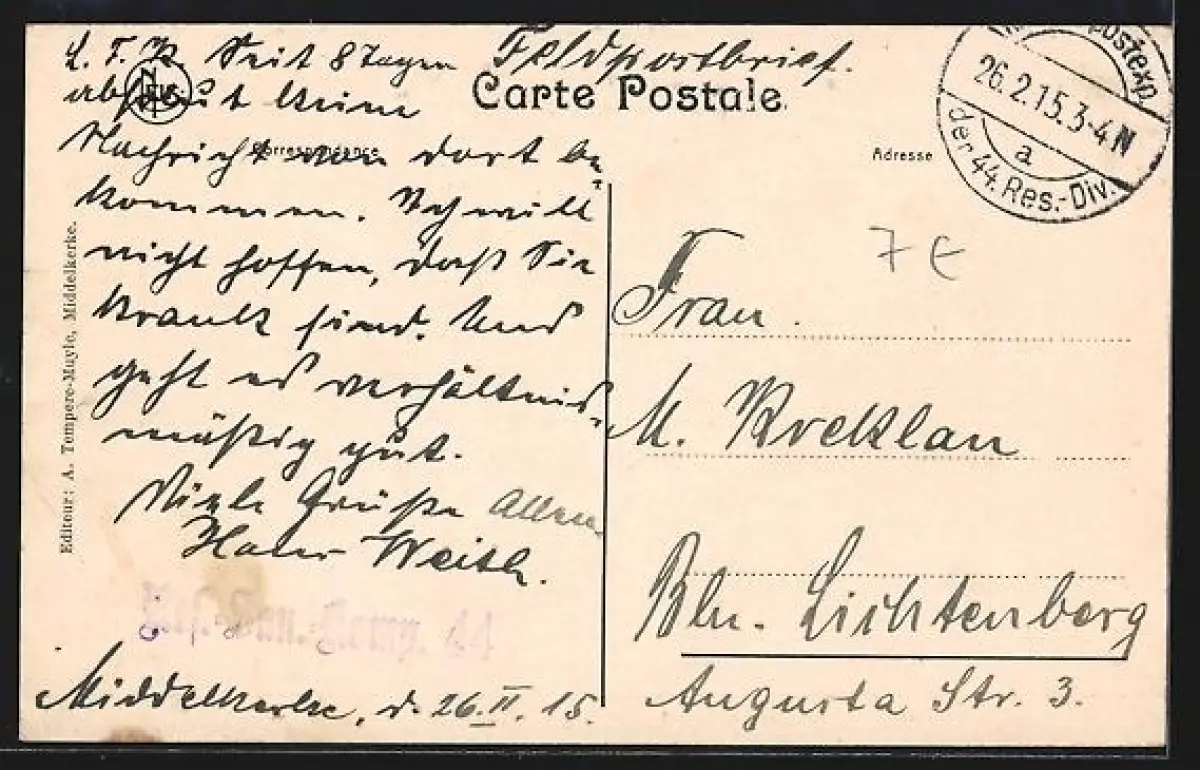 L. F. K. Seit 8 Tagen
absolut keine
Nachricht von dort be-
kommen. Ich will
nicht hoffen, daß Sie
krank sind. Uns
geht es verhältnis-
mäßig gut.
Viele Grüße Allen
Hans Weith.
Res. San. Komp. 44
Middelkerke, d. 26.II.15.
Feldpostbrief.
Carte Postale.
Correspondance
Adresse
postexp.
26.2.15.3-4N
a
der 44. Res.-Div.
7 E
Frau
M. Kreklau
Bln. Lichtenberg
Augusta Str. 3.
Editeur: A. Tempere-Muyle, Middelkerke.